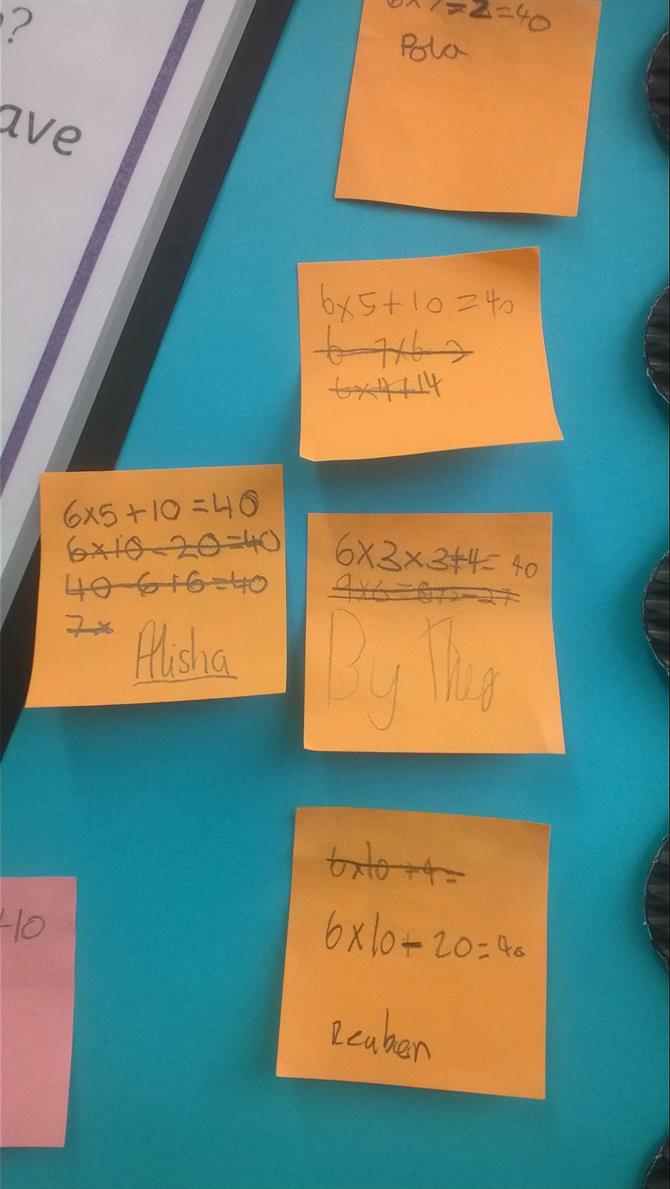 ?
ave
6x7-2=40
Pola
6x5+10=40
6-7x6-2
6x4+14
6x5+10=40
6x10-20=40
40-6+6=40
7x
Alisha
6x3x3+4=40
By Theo
6x10+4=
6x10-20=40
Reuben
+10